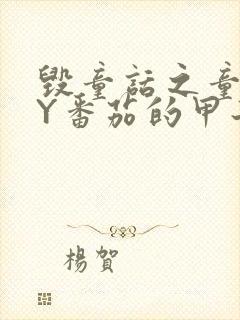 毀童話之童
Y番茄的甲
楊賀